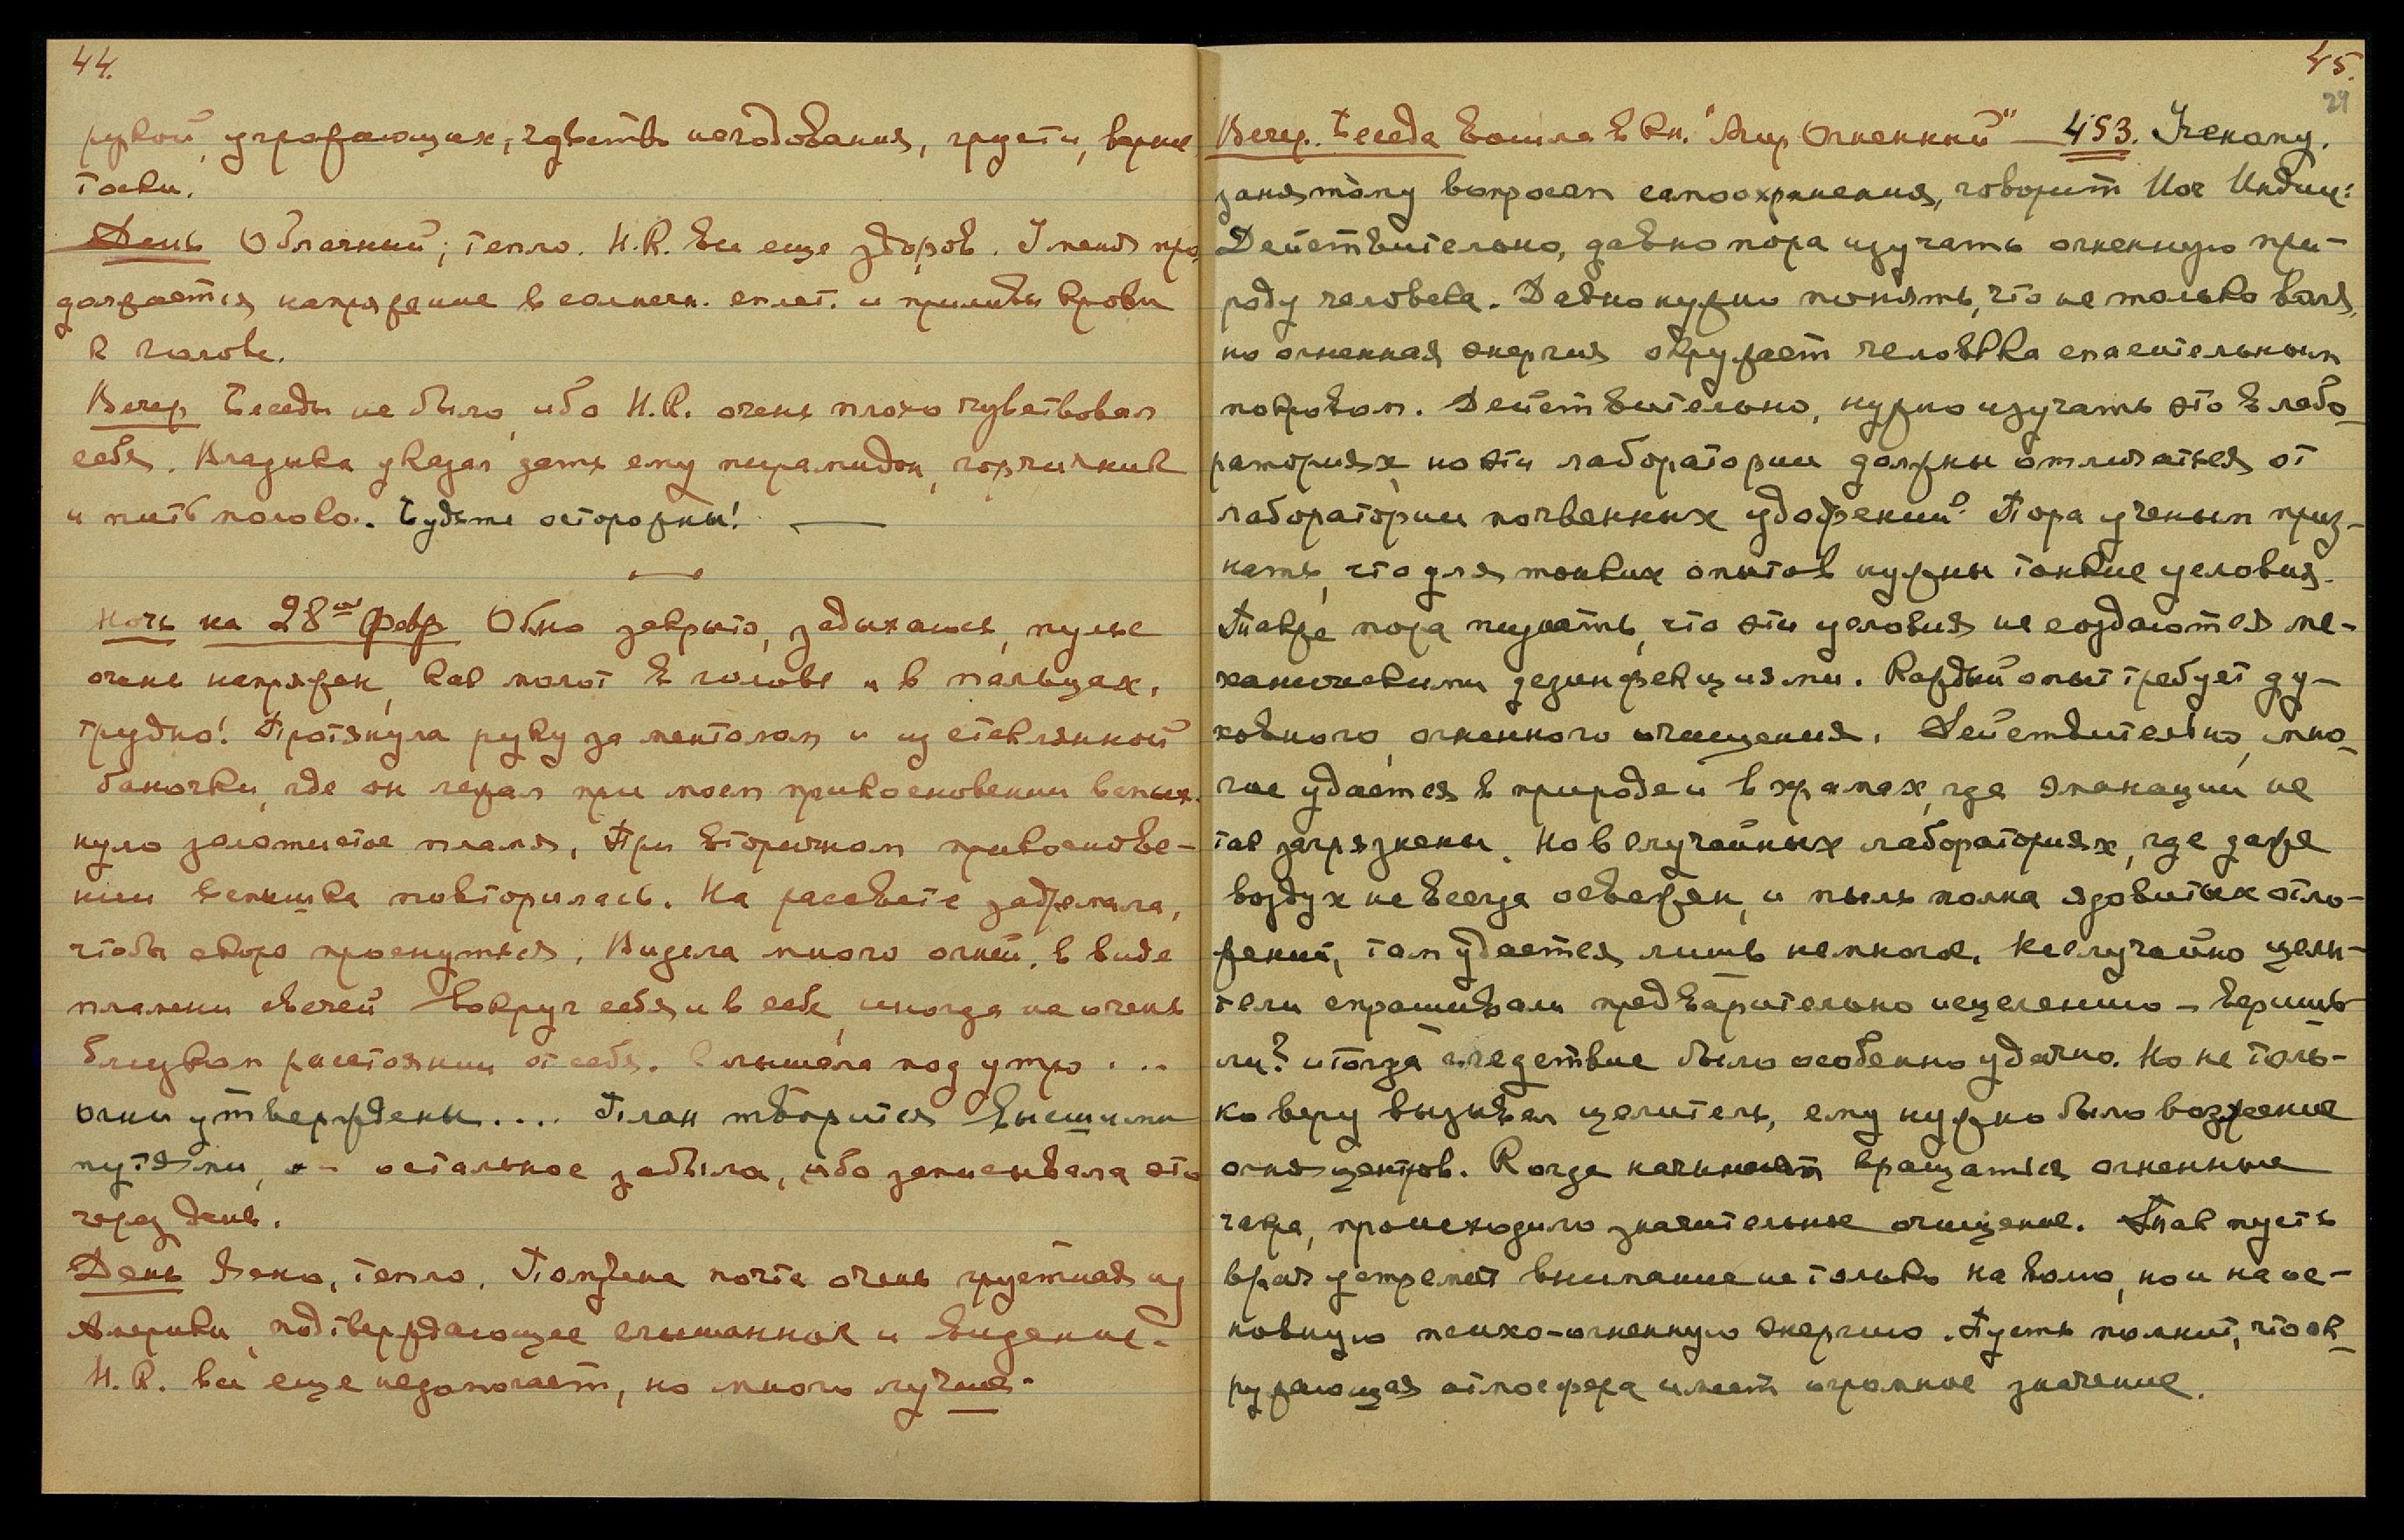 44.
рукой, угрожающих, чувство негодования, грусти, вернее
тоски.
День Облачный; тепло. Н.К. все еще здоров. У меня про-
должается напряжение в солнечн. сплет. и приливы крови
к голове.
Вечер Беседы не было, ибо Н.К. очень плохо чувствовал
себя. Владыка указал дать ему пирамидон, горчичник
и пить молоко. Будьте осторожны! —
Ночь на 28ое Февр Окно закрыто, задыхаюсь, пульс
очень напряжен, как молот в голове и в пальцах.
Трудно! Протянула руку за ментолом и из стеклянной
баночки, где он лежал при моем прикосновении вспых-
нуло золотистое пламя. При вторичном прикоснове-
нии вспышка повторилась. На рассвете задремала,
чтобы скоро проснуться. Видела много огней, в виде
пламени свечей вокруг себя и в себе, иногда на очень
близком расстоянии от себя. Слышала под утро ...
огни утверждены.... План творится Высшими
путями, — остальное забыла, ибо записывала это
через день.
День Ясно, тепло. Получена почта очень грустная из
Америки, подтверждающее слышанное и видение.
Н.К. все еще недомогает, но много лучше.
45.
29
Вечер. Беседа вошла в кн. "Мир Огненный" — 453. Ученому,
занятому вопросом самоохранения, говорит Йог Индии:
Действительно, давно пора изучать огненную при-
роду человека. Давно нужно понять, что не только воля,
но огненная энергия окружает человека спасительным
покровом. Действительно, нужно изучать это в лабо-
раториях, но эти лаборатории должны отличаться от
лаборатории почвенных удобрений. Пора ученым приз-
нать, что для тонких опытов нужны тонкие условия.
Также пора признать, что эти условия не создаются ме-
ханическими дезинфекциями. Каждый опыт требует ду-
ховного, огненного очищения. Действительно, мно-
гое удается в природе и в храмах, где эманации не
так загрязнены. Но в случайных лабораториях, где даже
воздух не всегда освежен, и пыль полна ядовитых отло-
жений, там удается лишь немногое. Не случайно цели-
тели спрашивали предварительно исцелению — веришь
ли? и тогда следствие было особенно удачно. Но не толь-
ко веру вызывал целитель, ему нужно было возжение
огня центров. Когда начинают вращаться огненные
чакры, происходило значительное очищение. Так пусть
врач устремит внимание не только на волю, но и на ос-
новную психо-огненную энергию. Пусть помнит, что ок-
ружающая атмосфера имеет огромное значение.